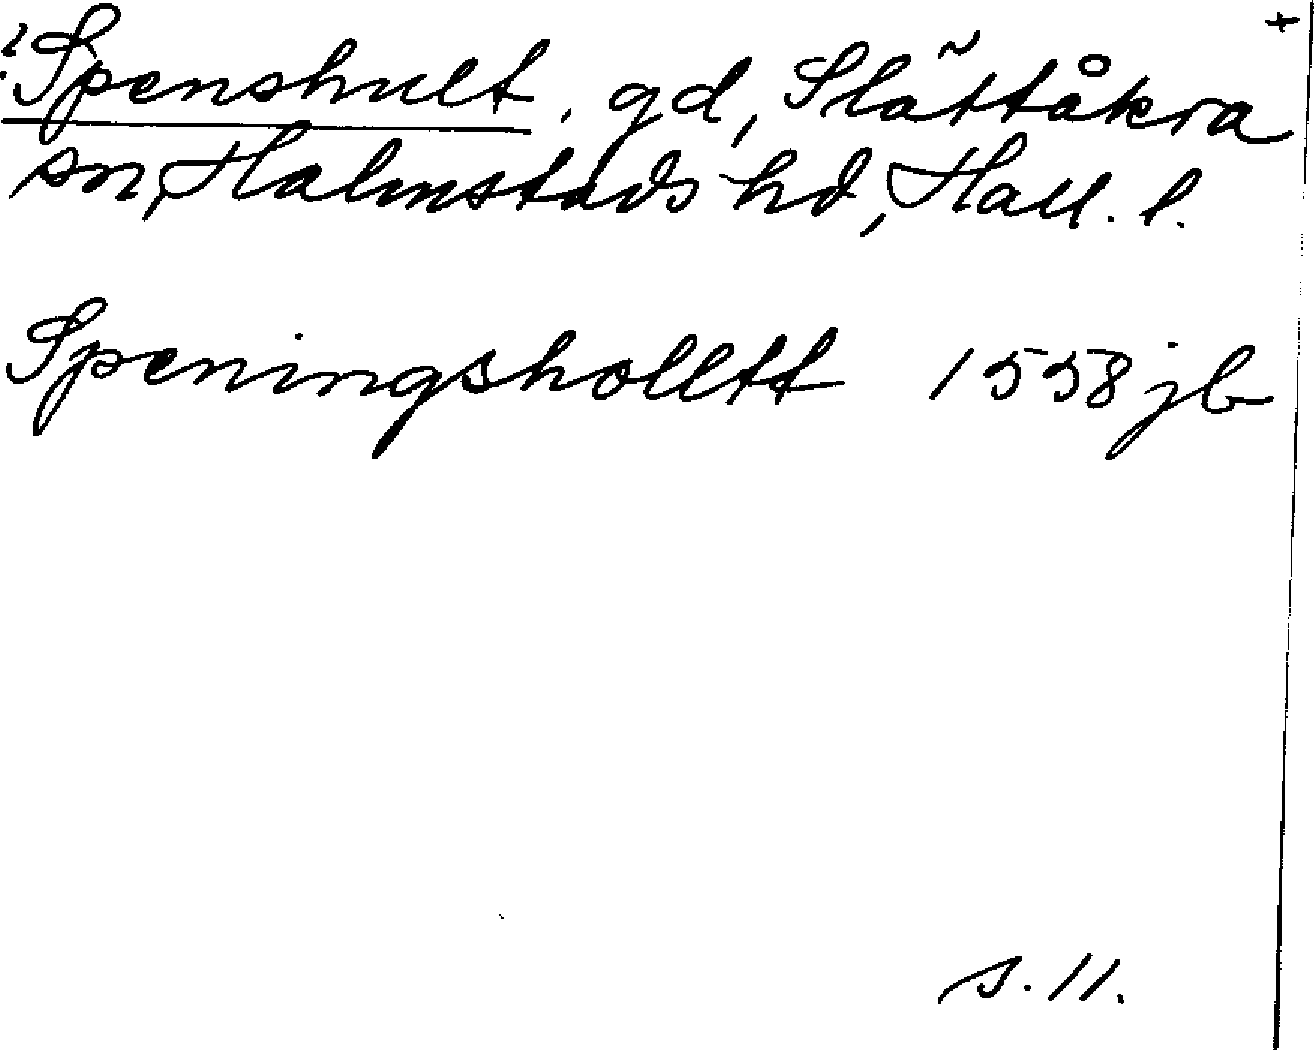 ? Spenshult, gd, Slättåkra +
sn, Halmstads hd, Hall. l.
Speningsholltt 1558 jb
s. 11.